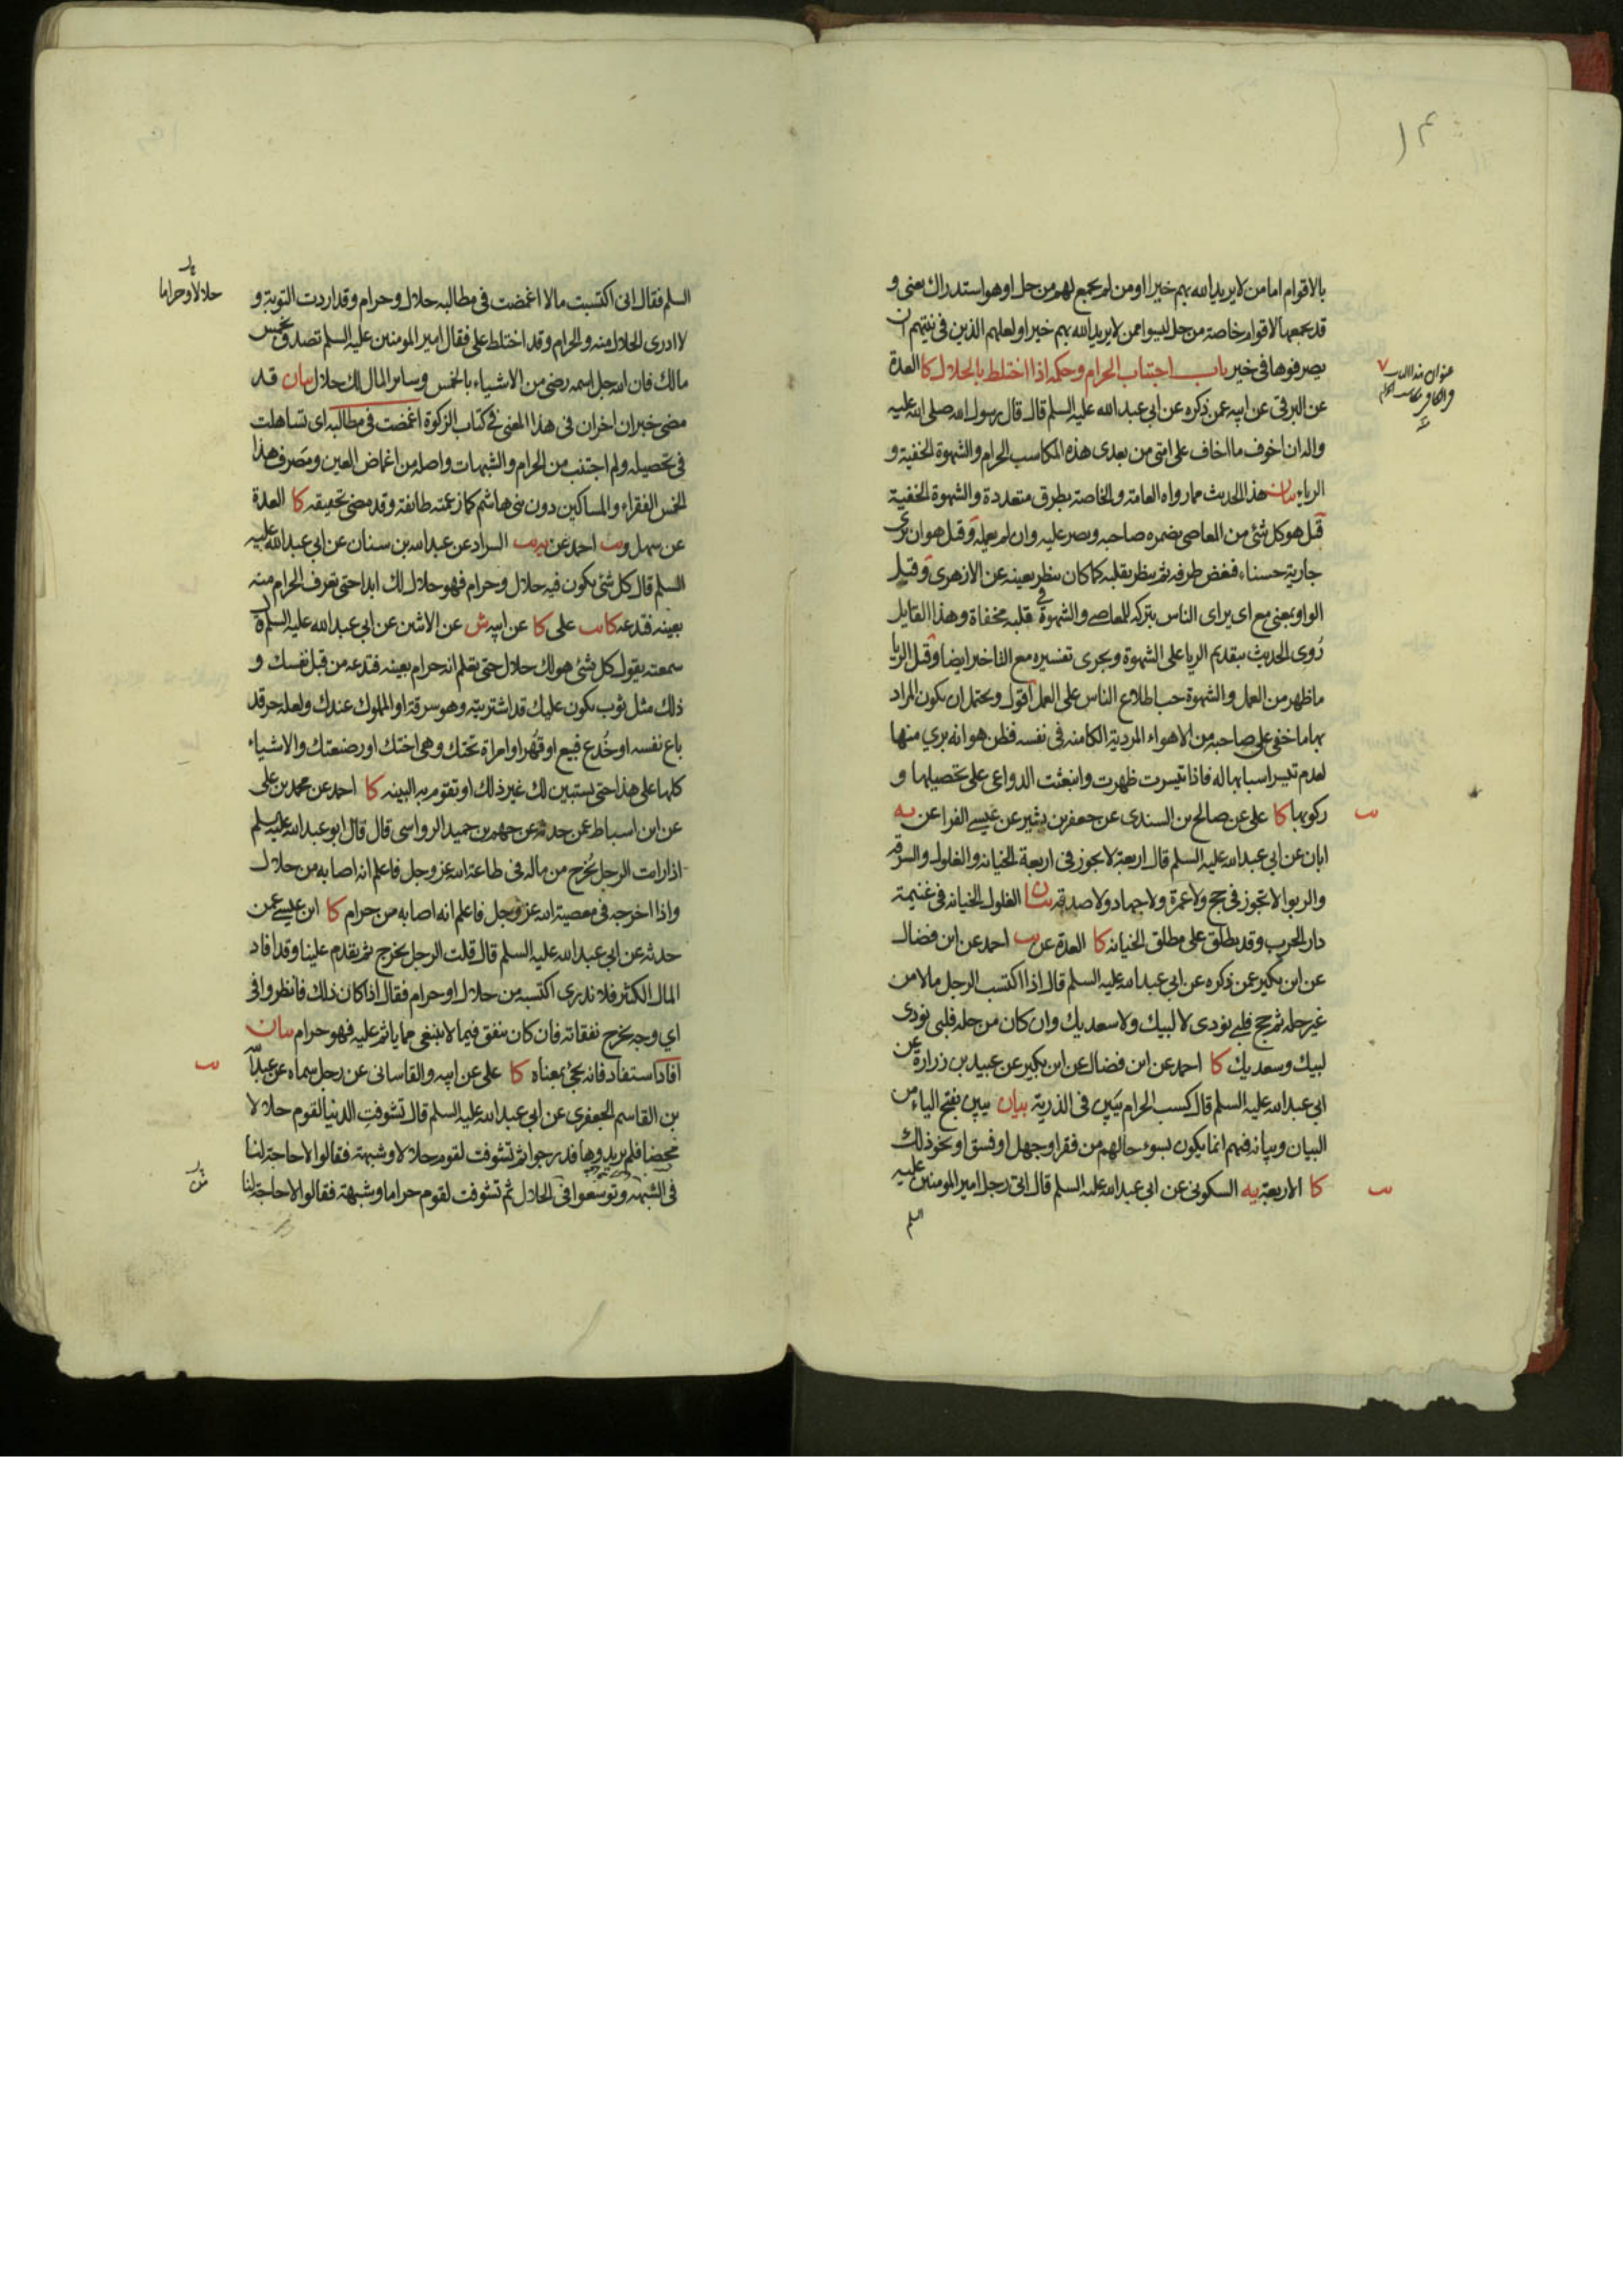 بالاقوام اما من لا يريد الله بهم خيرا او من لم يجمع لهم من حل او هو استدراك يعنى و
قد يجمعها لاقوام خاصة من حل ليسوا ممن لا يريد الله بهم خيرا ولعلهم الذين فى نيتهم ان
يصرفوها فى خير باب اجتناب الحرام وحكمه اذا اختلط بالحلال كا العدة
عن البرقى عن ابيه عمن ذكره عن ابى عبد الله عليه السلم قال قال رسول الله صلى الله عليه
واله ان اخوف ما اخاف على امتى من بعدى هذه المكاسب الحرام والشهوة الخفية و
الرياء بيان هذا الحديث مما رواه العامة والخاصة بطرق متعددة والشهوة الخفية
قيل هو كل شئ من المعاصى يضمره صاحبه ويصر عليه وان لم يعمله وقيل هو ان يرى
جارية حسناء فغض طرفه ثم ينظر بقلبه كما كان ينظر بعينه عن الازهرى وقيل
الواو بمعنى مع اى يراى الناس بتركه للمعاصى والشهوة فى قلبه مخفاة وهذا القايل
روى الحديث بتقديم الريا على الشهوة ويجرى تفسيره مع التاخير ايضا وقيل الريا
ما ظهر من العمل والشهوة حب اطلاع الناس على العمل اقول ويحتمل ان يكون المراد
بها ما خفى على صاحبه من الاهواء المردية الكامنه فى نفسه فظن هو انه برى منها
لعدم تيسر اسبابها له فاذا تيسرت ظهرت وانبعثت الدواعى على تحصيلها و
ركوبها كا على عن صالح بن السندى عن جعفر بن بشير عن عيسى الفرا عن يه
ابان عن ابى عبد الله عليه السلم قال اربعة لا يجوز فى اربعة الخيانه والغلول والسرقه
والربوا لا تجوز فى حج ولا عمرة ولا جهاد ولا صدقه بيان الغلول الخيانه فى غنيمة
دار الحرب وقد يطلق على مطلق الخيانه كا العدة عن احمد عن ابن فضال
عن ابن بكير عمن ذكره عن ابى عبد الله عليه السلم قال اذا اكتسب الرجل مالا من
غير حله ثم حج فلبى نودى لا لبيك ولا سعديك وان كان من حله فلبى نودى
لبيك وسعديك كا احمد عن ابن فضال عن ابن بكير عن عبيد بن زرارة عن
ابى عبد الله عليه السلم قال كسب الحرام يبين فى الذرية بيان يبين بفتح الياء من
البيان وبيانه فيهم انما يكون بسوء حالهم من فقر او جهل او فسق او نحو ذلك
كا الاربعة يه السكونى عن ابى عبد الله عليه السلم قال اتى رجل امير المومنين عليه
السلم
السلم فقال انى اكتسبت مالا اغمضت فى مطالبه حلال وحرام وقد اردت التوبة و
حلالا وحراما
لا ادرى الحلال منه والحرام وقد اختلط على فقال امير المومنين عليه السلم تصدق بخمس
مالك فان الله جل اسمه رضى من الاشياء بالخمس وساير المال لك حلال بيان قد
مضى خبران اخران فى هذا المعنى فى كتاب الزكوة اغمضت فى مطالبه اى تساهلت
فى تحصيله ولم اجتنب من الحرام والشبهات واصله من اغماض العين ومصرف هذا
الخمس الفقراء والمساكين دون بنى هاشم كما زعمته طائفة وقد مضى تحقيقه كا العدة
عن سهل و احمد عن السراد عن عبد الله بن سنان عن ابى عبد الله عليه
السلم قال كل شئ يكون فيه حلال وحرام فهو حلال لك ابدا حتى تعرف الحرام منه
بعينه فتدعه كا على كا عن ابيه ش عن الاثنين عن ابى عبد الله عليه السلم قال
سمعته يقول كل شئ هو لك حلال حتى تعلم انه حرام بعينه فتدعه من قبل نفسك و
ذلك مثل ثوب يكون عليك قد اشتريته وهو سرقة او المملوك عندك ولعله حر قد
باع نفسه او خدع فبيع او قهر او امراة تحتك وهى اختك او رضيعتك والاشياء
كلها على هذا حتى يستبين لك غير ذلك او تقوم به البينه كا احمد عن محمد بن على
عن ابن اسباط عمن حدثه عن جهم بن حميد الرواسى قال قال ابو عبد الله عليه السلم
اذا رايت الرجل يخرج من ماله فى طاعة الله عز وجل فاعلم انه اصابه من حلال
واذا اخرجه فى معصية الله عز وجل فاعلم انه اصابه من حرام كا ابن عيسى عمن
حدثه عن ابى عبد الله عليه السلم قال قلت الرجل يخرج ثم يقدم علينا وقد افاد
المال الكثير فلا ندرى اكتسبه من حلال او حرام فقال اذا كان ذلك فانظروا فى
اى وجه يخرج نفقاته فان كان ينفق فيما لا ينبغى مما ياثم عليه فهو حرام بيان
افاد استفاد فانه يجئ بمعناه كا على عن ابيه والقاسانى عن رجل سماه عن عبد الله
بن القاسم الجعفرى عن ابى عبد الله عليه السلم قال تشوفت الدنيا لقوم حلالا
محضا فلم يريدوها فدرجوا ثم تشوفت لقوم حلالا وشبهة فقالوا لا حاجة لنا
فى الشبهة وتوسعوا فى الحلال ثم تشوفت لقوم حراما وشبهة فقالوا لا حاجة لنا